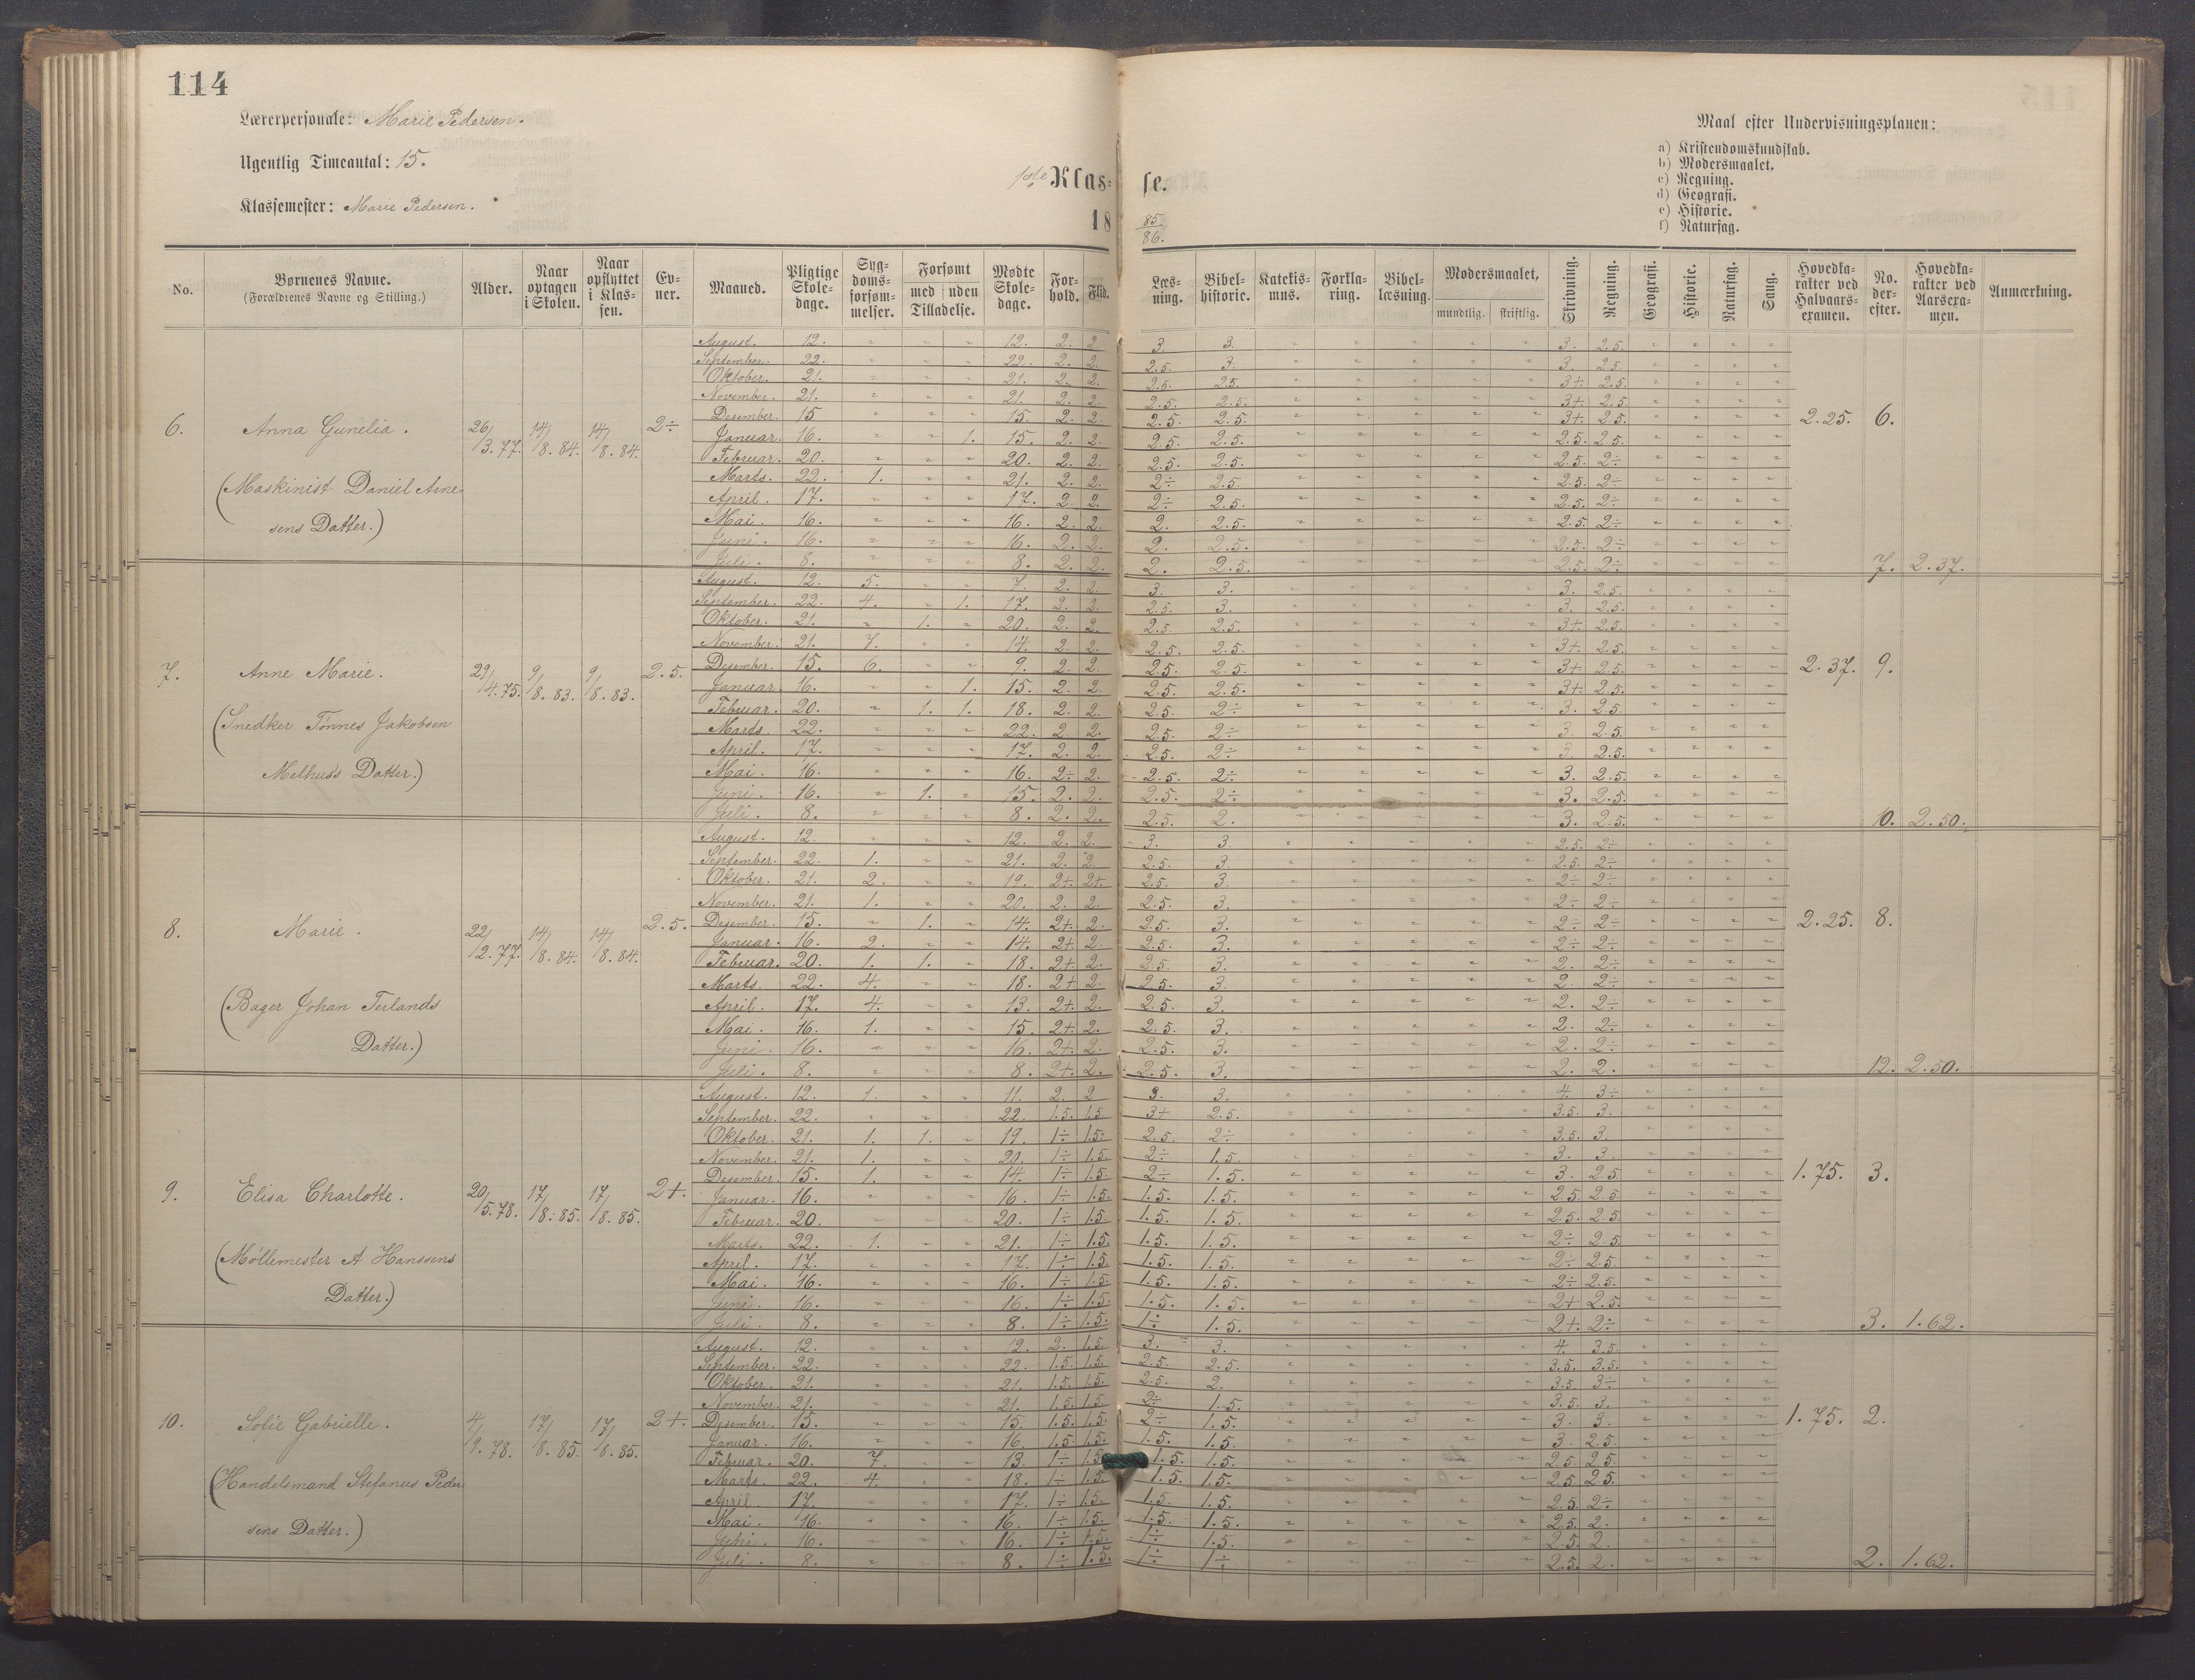 114
Lærerpersonale: Marie Pedersen.
Ugentlig Timeantal: 15.
Klassemester: Marie Pedersen.
1ste Klasse.
18 85/86.
Maal efter Undervisningsplanen:
a) Kristendomskundskab.
b) Modersmaalet.
c) Regning.
d) Geografi.
e) Historie.
f) Naturfag.
No. | Børnenes Navne. (Forældrenes Navne og Stilling.) | Alder. | Naar optagen i Skolen. | Naar opflyttet i Klassen. | Evner. | Maaned. | Pligtige Skoledage. | Sygdomsforsømmelser. | Forsømt med uden Tilladelse. | Mødte Skoledage. | Forhold. | Flid. | Læsning. | Bibelhistorie. | Katekismus. | Forklaring. | Bibellæsning. | Modersmaalet, mundtlig. skriftlig. | Skrivning. | Regning. | Geografi. | Historie. | Naturfag. | Sang. | Hovedkarakter ved Halvaarsexamen. | No. derefter. | Hovedkarakter ved Aarsexamen. | Anmærkning.
6. Anna Gunelia. 26/3.77. 14/8.84. 14/8.84. 2÷
(Maskinist Daniel Arnesens Datter.)
August. 12. " " " 12. 2. 2. 3. 3. " " " " " 3. 2.5. " " " "
September. 22. " " " 22. 2. 2. 2.5. 3. " " " " " 3. 2.5. " " " "
Oktober. 21. " " " 21. 2. 2. 2.5. 2.5. " " " " " 3+. 2.5. " " " "
November. 21. " " " 21. 2. 2. 2.5. 2.5. " " " " " 3+. 2.5. " " " "
Desember. 15 " " " 15. 2. 2. 2.5. 2.5. " " " " " 3+. 2.5. " " " " 2.25. 6.
Januar. 16. " " 1. 15. 2. 2. 2.5. 2.5. " " " " " 2.5. 2.5. " " " "
Februar. 20. " " " 20. 2. 2. 2.5. 2.5. " " " " " 2.5. 2÷ " " " "
Marts. 22. 1. " " 21. 2. 2. 2÷ 2.5. " " " " " 2.5. 2÷ " " " "
April. 17. " " " 17. 2. 2. 2÷ 2.5. " " " " " 2.5. 2÷ " " " "
Mai. 16. " " " 16. 2. 2. 2. 2.5. " " " " " 2.5. 2÷ " " " "
Juni. 16. " " " 16. 2. 2. 2. 2.5. " " " " " 2.5. 2÷ " " " "
Juli. 8. " " " 8. 2. 2. 2. 2.5. " " " " " 2.5. 2÷ " " " " 7. 2.37.
7. Anne Marie. 29/4.75. 9/8.83. 9/8.83. 2.5.
(Snedker Tønnes Jakobsen Melhus's Datter.)
August. 12. 5. " " 7. 2. 2. 3. 3. " " " " " 3. 2.5. " " " "
September. 22. 4. " 1. 17. 2. 2. 2.5. 3. " " " " " 3. 2.5. " " " "
Oktober. 21. " 1. " 20. 2. 2. 2.5. 2.5. " " " " " 3+. 2.5. " " " "
November. 21. 7. " " 14. 2. 2. 2.5. 2.5. " " " " " 3+. 2.5. " " " "
Desember. 15. 6. " " 9. 2. 2. 2.5. 2.5. " " " " " 3+. 2.5. " " " " 2.37. 9.
Januar. 16. " " 1. 15. 2. 2. 2.5. 2.5. " " " " " 3+. 2.5. " " " "
Februar. 20. " 1. 1. 18. 2. 2. 2.5. 2÷ " " " " " 3. 2.5. " " " "
Marts. 22. " " " 22. 2. 2. 2.5. 2÷ " " " " " 3. 2.5. " " " "
April. 17. " " " 17. 2. 2. 2.5. 2÷ " " " " " 3 2.5. " " " "
Mai. 16. " " " 16. 2÷ 2. 2.5. 2÷ " " " " " 3. 2.5. " " " "
Juni. 16. " 1. " 15. 2. 2. 2.5. 2÷ " " " " " 3. 2.5. " " " "
Juli. 8. " " " 8. 2. 2. 2.5. 2. " " " " " 3. 2.5. " " " " 10. 2.50.
8. Marie. 22/2.77. 14/8.84. 14/8.84. 2.5.
(Bager Johan Terlands Datter.)
August. 12. " " " 12. 2. 2. 3. 3. " " " " " 2.5. 2÷ " " " "
September. 22. 1. " " 21. 2. 2. 2.5. 3. " " " " " 2.5. 2÷ " " " "
Oktober. 21. 2. " " 19. 2+. 2+. 2.5. 3. " " " " " 2÷ 2÷ " " " "
November. 21. 1. " " 20. 2. 2. 2.5. 3. " " " " " 2÷ 2÷ " " " "
Desember. 15. " 1. " 14. 2+. 2. 2.5. 3. " " " " " 2÷ 2÷ " " " " 2.25. 8.
Januar. 16. 2. " " 14. 2+ 2. 2.5. 3. " " " " " 2÷ 2÷ " " " "
Februar. 20. 1. 1. " 18. 2+. 2. 2.5. 3. " " " " " 2. 2÷ " " " "
Marts. 22. 4. " " 18. 2+ 2. 2.5. 3. " " " " " 2. 2÷ " " " "
April. 17. 4. " " 13. 2+. 2. 2.5. 3. " " " " " 2. 2÷ " " " "
Mai. 16. 1. " " 15. 2+. 2. 2.5. 3. " " " " " 2. 2÷ " " " "
Juni. 16. " " " 16. 2+. 2. 2.5. 3. " " " " " 2. 2÷ " " " "
Juli. 8. " " " 8. 2+. 2. 2.5. 3. " " " " " 2. 2. " " " " 12. 2.50.
9. Elisa Charlotte. 20/5.78. 17/8.85. 17/8.85. 2+.
(Møllemester A Hanssens Datter.)
August. 12. 1. " " 11. 2. 2 3. 3. " " " " " 4. 3÷ " " " "
September. 22. " " " 22. 1.5. 1.5. 3+ 2.5. " " " " " 3.5. 3. " " " "
Oktober. 21. 1. 1. " 19. 1÷ 1.5. 2.5. 2÷ " " " " " 3.5. 3. " " " "
November. 21. 1. " " 20. 1÷ 1.5. 2÷ 1.5. " " " " " 3. 3. " " " "
Desember. 15. 1. " " 14. 1÷ 1.5. 2÷ 1.5. " " " " " 3. 2.5. " " " " 1.75. 3.
Januar. 16. " " " 16. 1÷ 1.5. 1.5. 1.5. " " " " " 2.5. 2.5 " " " "
Februar. 20. " " " 20. 1÷ 1.5. 1.5. 1.5. " " " " " 2.5. 2.5. " " " "
Marts. 22. 1. " " 21. 1÷ 1.5. 1.5. 1.5. " " " " " 2÷ 2.5. " " " "
April. 17. " " " 17. 1÷ 1.5. 1.5. 1.5. " " " " " 2÷ 2.5. " " " "
Mai. 16. " " " 16. 1÷ 1.5. 1.5. 1.5. " " " " " 2÷ 2.5. " " " "
Juni. 16. " " " 16. 1÷ 1.5. 1.5. 1.5. " " " " " 2+ 2.5. " " " "
Juli. 8. " " " 8. 1÷ 1.5. 1÷ 1.5. " " " " " 2+. 2÷ " " " " 3. 1.62.
10. Sofie Gabrielle. 4/9.78. 17/8.85. 17/8.85. 2+.
(Handelsmand Stefanus Pedersens Datter.)
August. 12. " " " 12. 2. 1.5. 3. 3. " " " " " 4. 3.5. " " " "
September. 22. " " " 22. 1.5. 1.5. 2.5. 2.5. " " " " " 3.5. 3.5. " " " "
Oktober. 21. " " " 21. 1.5. 1.5. 2.5. 2. " " " " " 3.5. 3÷ " " " "
November. 21. " " " 21. 1.5. 1.5. 2÷ 1.5. " " " " " 3.5. 3. " " " "
Desember. 15. " " " 15. 1.5. 1.5. 2÷ 1.5. " " " " " 3. 3. " " " " 1.75. 2.
Januar. 16. " " " 16. 1.5. 1.5. 1.5. 1.5. " " " " " 3. 2.5. " " " "
Februar. 20. 7. " " 13. 1÷ 1.5. 1.5. 1.5. " " " " " 2.5 2.5 " " " "
Marts. 22. 4. " " 18. 1÷ 1.5. 1.5. 1.5. " " " " " 2.5. 2.5. " " " "
April. 17. " " " 17. 1÷ 1.5. 1.5. 1.5. " " " " " 2.5. 2÷ " " " "
Mai. 16. " " " 16. 1÷ 1.5. 1.5. 1.5. " " " " " 2.5. 2. " " " "
Juni. 16. " " " 16. 1÷ 1.5. 1÷ 1.5. " " " " " 2.5. 2. " " " "
Juli. 8. " " " 8. 1÷ 1.5. 1÷ 1÷ " " " " " 2.5. 2. " " " " 2. 1.62.